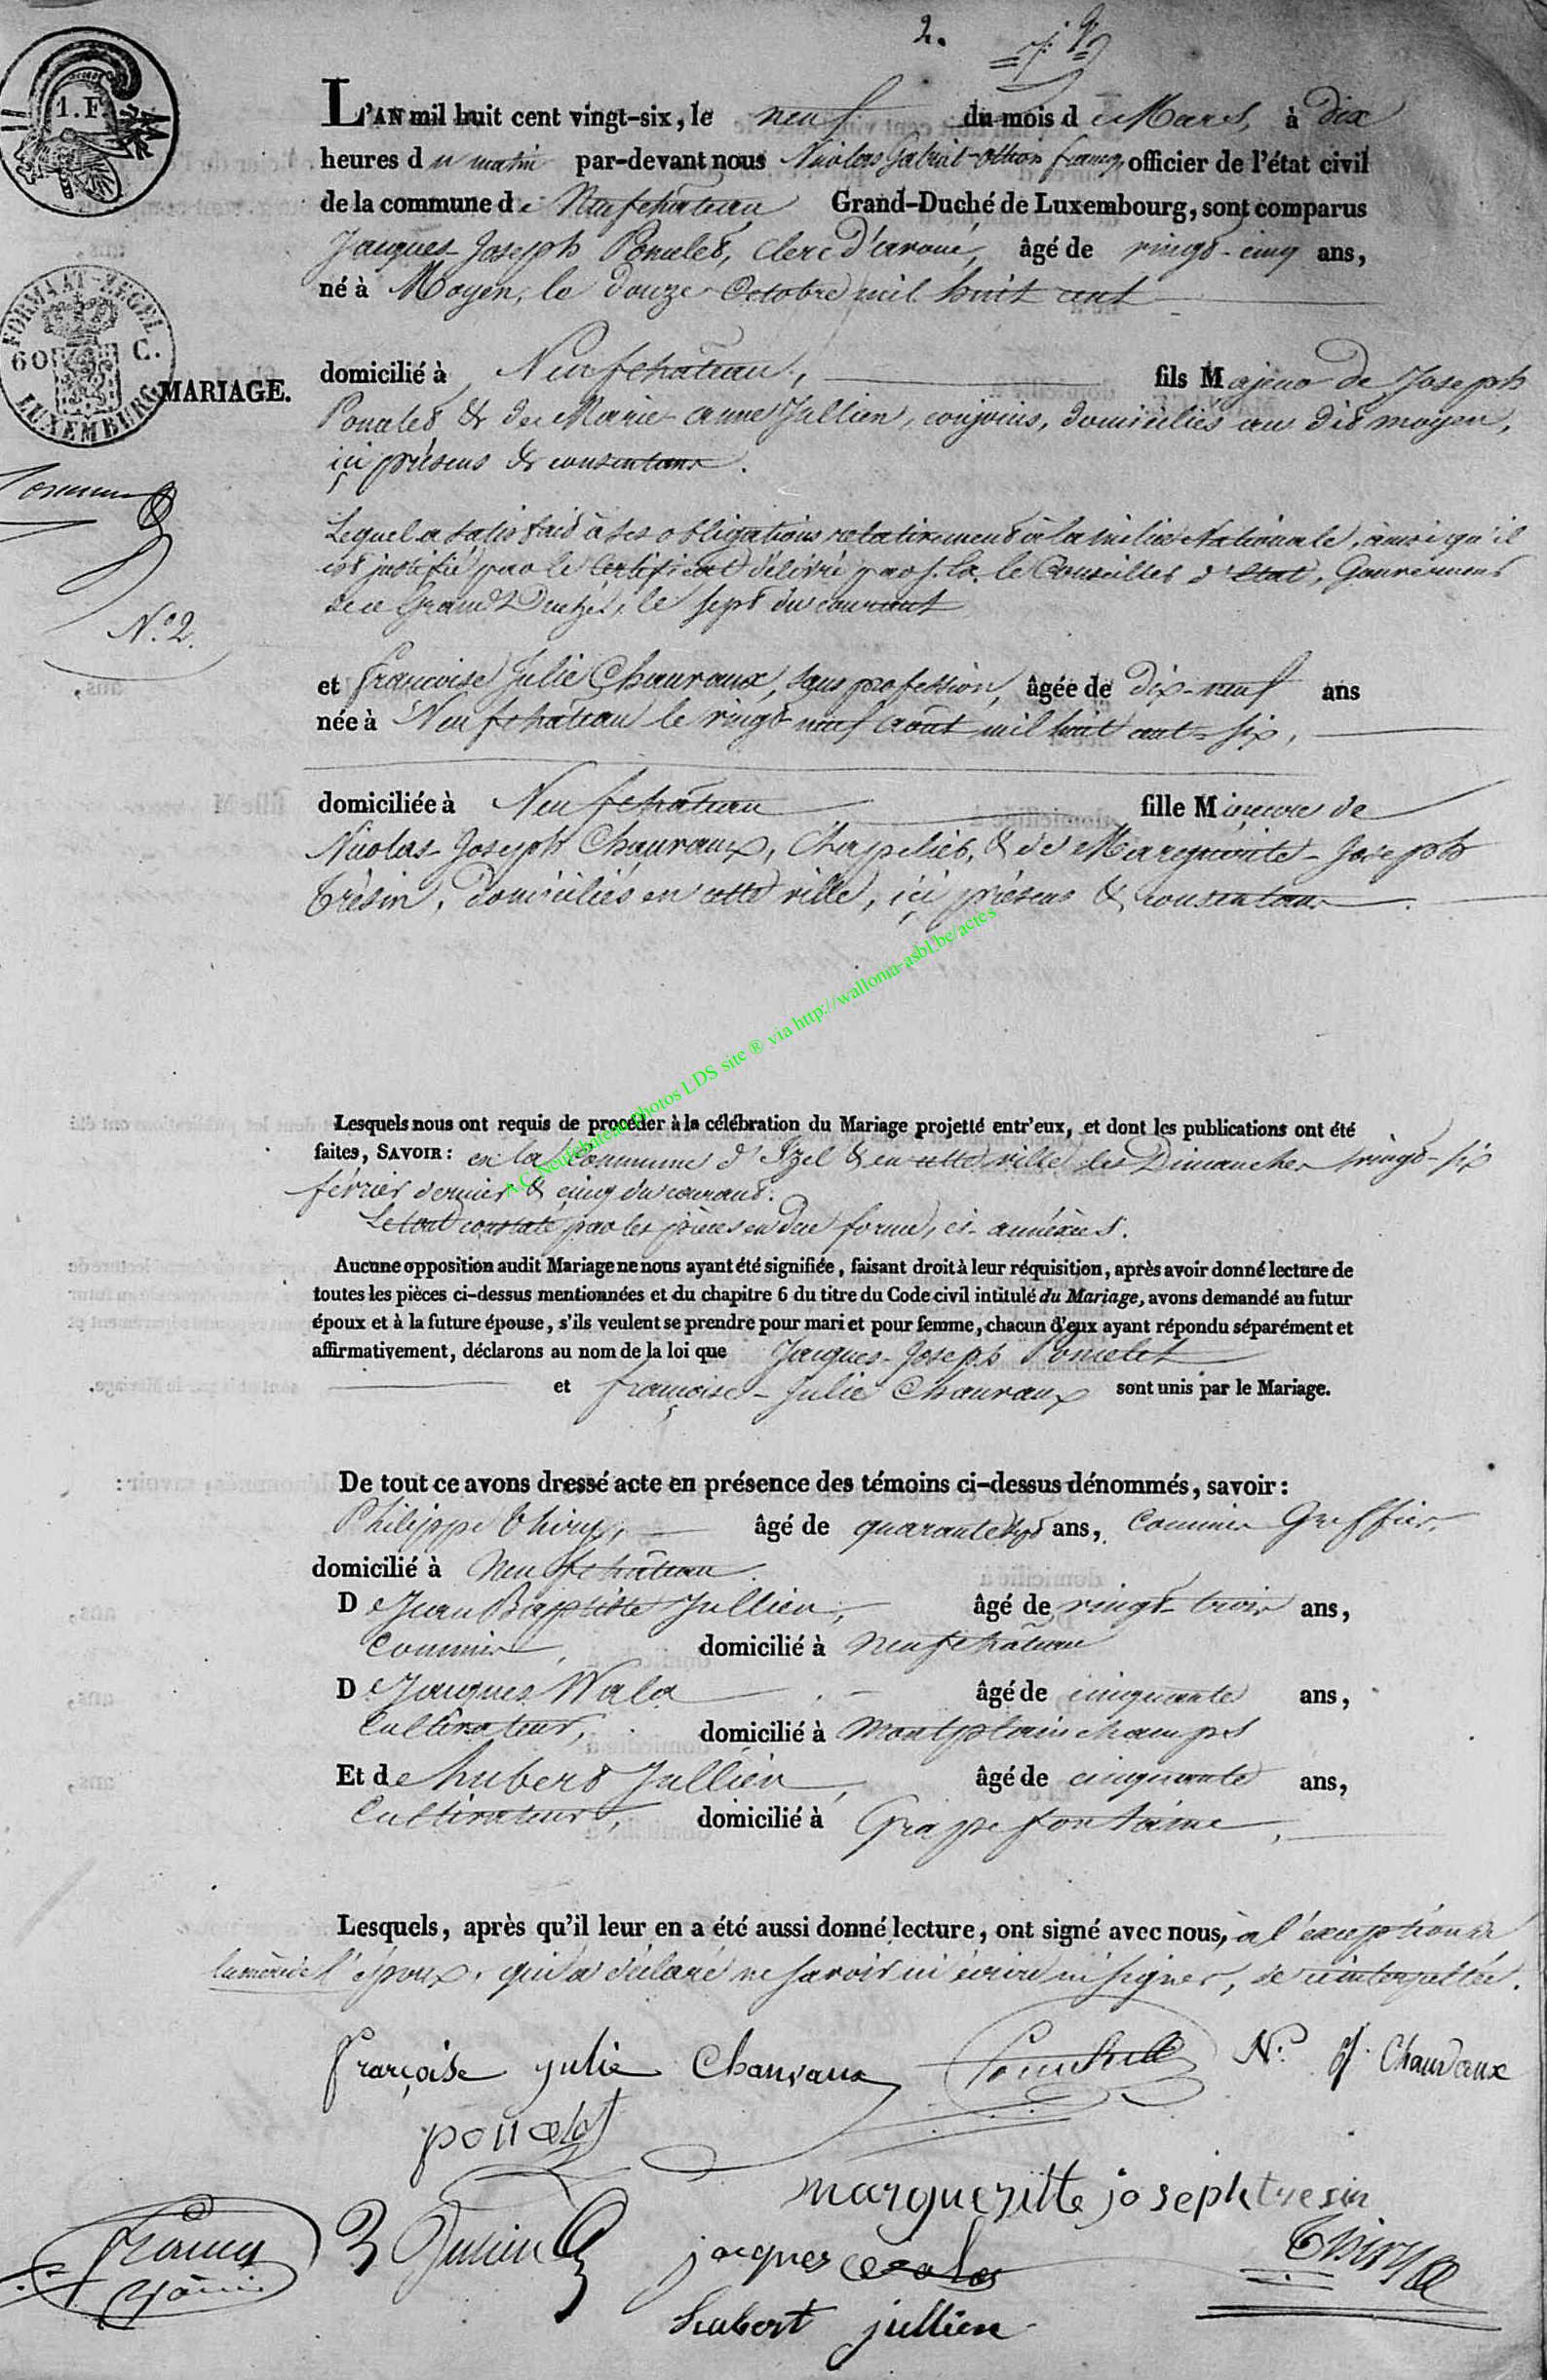 2.
1. F.
L'AN mil huit cent vingt-six, le neuf du mois de Mars, à dix
heures du matin par-devant nous Nicolas Gabriel-Othon francq, officier de l'état civil
de la commune de Neufchâteau Grand-Duché de Luxembourg, sont comparus
Jacques-Joseph Poncelet, clerc d'avoué, âgé de vingt-cinq ans,
né à Moyen, le douze Octobre mil huit cent
FORMAAT-ZEGEL
60 C.
LUXEMBURG
MARIAGE.
domicilié à Neufchâteau, fils Majeur de Joseph
Poncelet & de Marie-anne Jullien, conjoins, domiciliés au dit moyen,
ici présens & consentans.
Lequel a satisfait à ses obligations relativement à la milice Nationale, ainsi qu'il
est justifié par le Certificat délivré par le Conseiller d'Etat, Gouverneur
de ce Grand Duché, le sept du courant
N.º 2.
et françoise Julie Chauvaux, sans profession, âgée de dix-neuf ans
née à Neufchâteau le vingt neuf août mil huit cent-six,
domiciliée à Neufchâteau fille Mineure de
Nicolas-Joseph Chauvaux, Chapelier, & de Marguerite-Joseph
Trésin, domiciliés en cette ville, ici présens & consentans.
A.C. Neufchâteau Photos LDS site ® via http://wallonia-asbl.be/actes
Lesquels nous ont requis de procéder à la célébration du Mariage projetté entr'eux, et dont les publications ont été
faites, SAVOIR: en la Commune d'Izel & en cette ville, les Dimanches vingt-six
février dernier & cinq du courant.
Le tout constaté par les pièces en due forme, ci-annéxées.
Aucune opposition audit Mariage ne nous ayant été signifiée, faisant droit à leur réquisition, après avoir donné lecture de
toutes les pièces ci-dessus mentionnées et du chapitre 6 du titre du Code civil intitulé du Mariage, avons demandé au futur
époux et à la future épouse, s'ils veulent se prendre pour mari et pour femme, chacun d'eux ayant répondu séparément et
affirmativement, déclarons au nom de la loi que Jacques-Joseph Poncelet
et françoise-Julie Chauvaux sont unis par le Mariage.
De tout ce avons dressé acte en présence des témoins ci-dessus dénommés, savoir:
Philippe Thiry, âgé de quarante sept ans, Commis Greffier,
domicilié à Neufchâteau.
De Jean Baptiste Jullien, âgé de vingt-trois ans,
Commis, domicilié à Neufchâteau
De Jacques Wala âgé de cinquante ans,
Cultivateur, domicilié à Montplainchamps
Et de hubert Jullien, âgé de cinquante ans,
Cultivateur, domicilié à Grapefontaine,
Lesquels, après qu'il leur en a été aussi donné lecture, ont signé avec nous, à l'exception de
la mère de l'époux, qui a déclaré ne savoir ni écrire ni signer, de ce interpellée.
françoise julie Chauvaux Poncelet N. J. Chauvaux
poncelet
margueritte joseph tresin
francq
B Jullien jacques Wala Thiry
hubert jullien